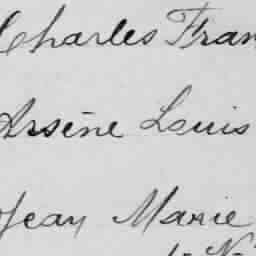 Charles Fran
Arsène Louis
Jean Marie